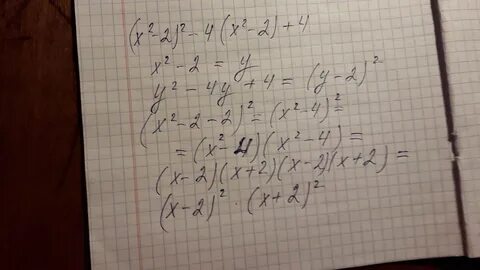 (x²-2)²-4(x²-2)+4
x²-2=y
y²-4y+4=(y-2)²
(x²-2-2)²=(x²-4)²=
=(x²-4)(x²-4)=
(x-2)(x+2)(x-2)(x+2)=
(x-2)²·(x+2)²